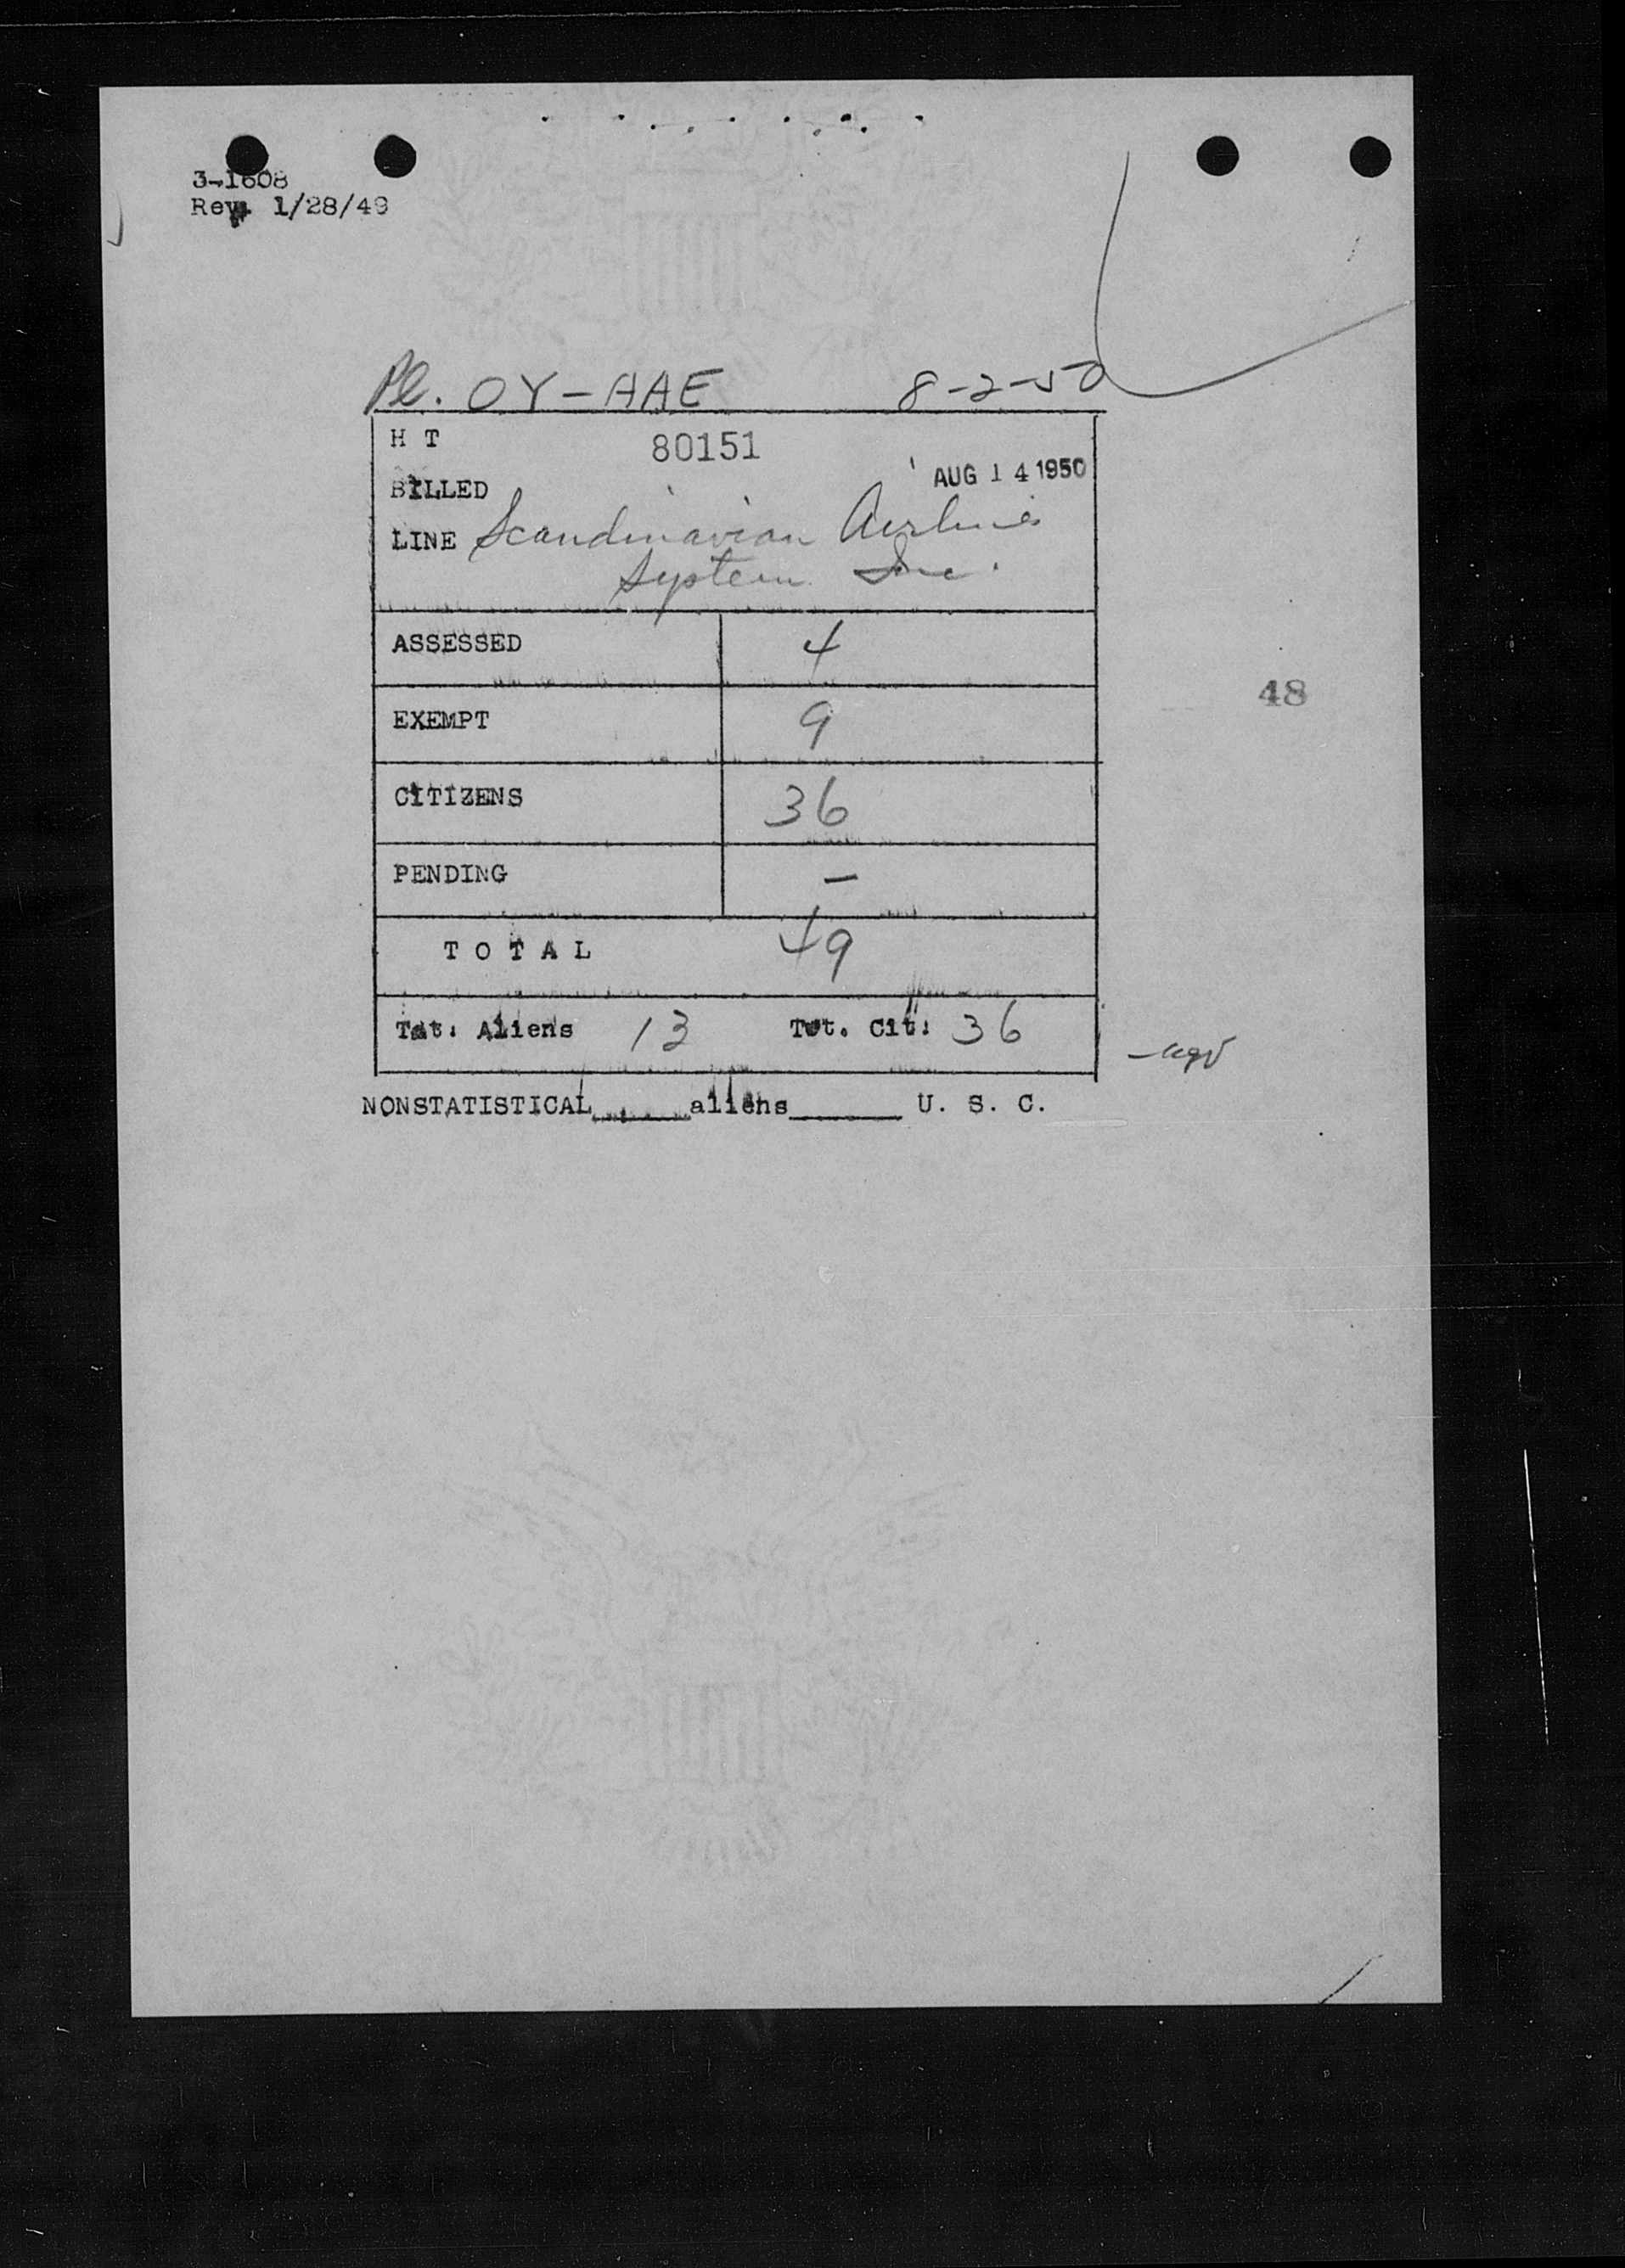 3-1608
Rev. 1/28/49
Pl. OY-AAE 8-2-50
H T 80151
BILLED AUG 14 1950
LINE Scandinavian Airlines
System Inc.
ASSESSED 4
EXEMPT 9
48
CITIZENS 36
PENDING —
T O T A L 49
Tot. Aliens 13 Tot. Cit. 36
NONSTATISTICAL______aliens_______ U. S. C.